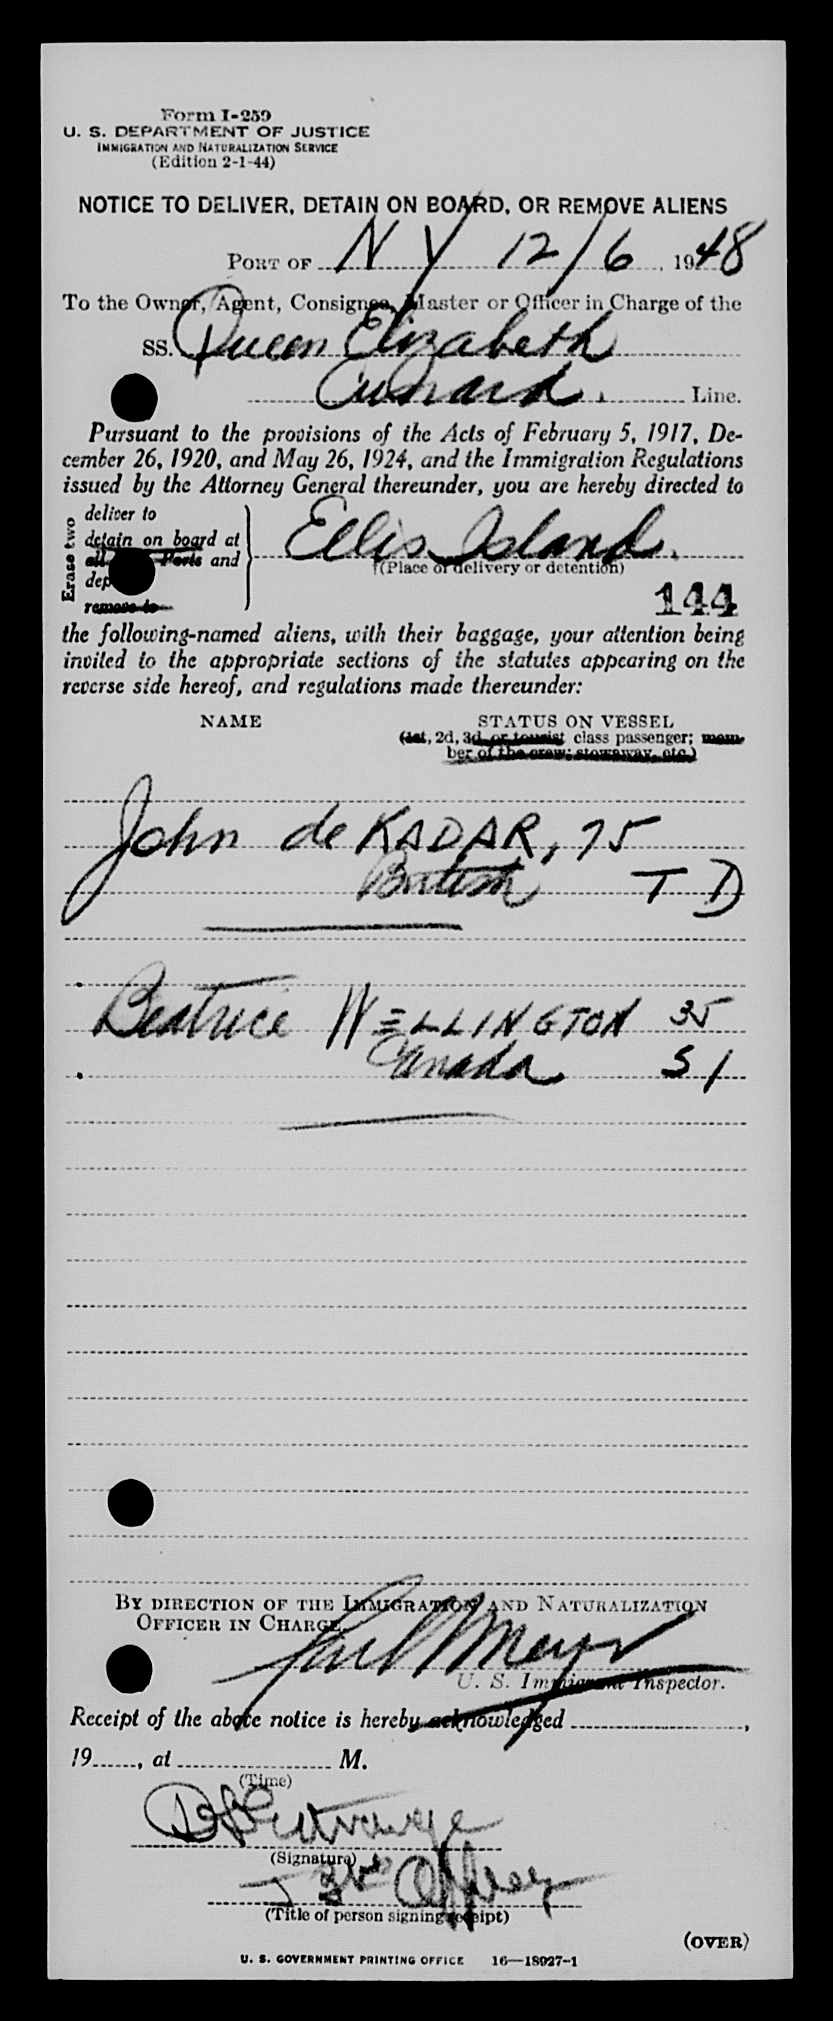 Form I-259
U. S. DEPARTMENT OF JUSTICE
IMMIGRATION AND NATURALIZATION SERVICE
(Edition 2-1-44)
NOTICE TO DELIVER, DETAIN ON BOARD, OR REMOVE ALIENS
PORT OF N Y 12/6, 1948
To the Owner, Agent, Consignee, Master or Officer in Charge of the
SS. Queen Elizabeth
Cunard Line.
Pursuant to the provisions of the Acts of February 5, 1917, De-
cember 26, 1920, and May 26, 1924, and the Immigration Regulations
issued by the Attorney General thereunder, you are hereby directed to
Erase two
deliver to
detain on board at
all Ports and
dep
remove to
Ellis Island.
(Place of delivery or detention)
144
the following-named aliens, with their baggage, your attention being
invited to the appropriate sections of the statutes appearing on the
reverse side hereof, and regulations made thereunder:
NAME STATUS ON VESSEL
(1st, 2d, 3d, or tourist class passenger; mem-
ber of the crew; stowaway, etc.)
John de KADAR, 75
British T D
Beatrice WELLINGTON 35
Canada S I
BY DIRECTION OF THE IMMIGRATION AND NATURALIZATION
OFFICER IN CHARGE.
U. S. Immigrant Inspector.
Receipt of the above notice is hereby acknowledged ,
19 , at M.
(Time)
(Signature)
(Title of person signing receipt)
(OVER)
U. S. GOVERNMENT PRINTING OFFICE 16—18927-1